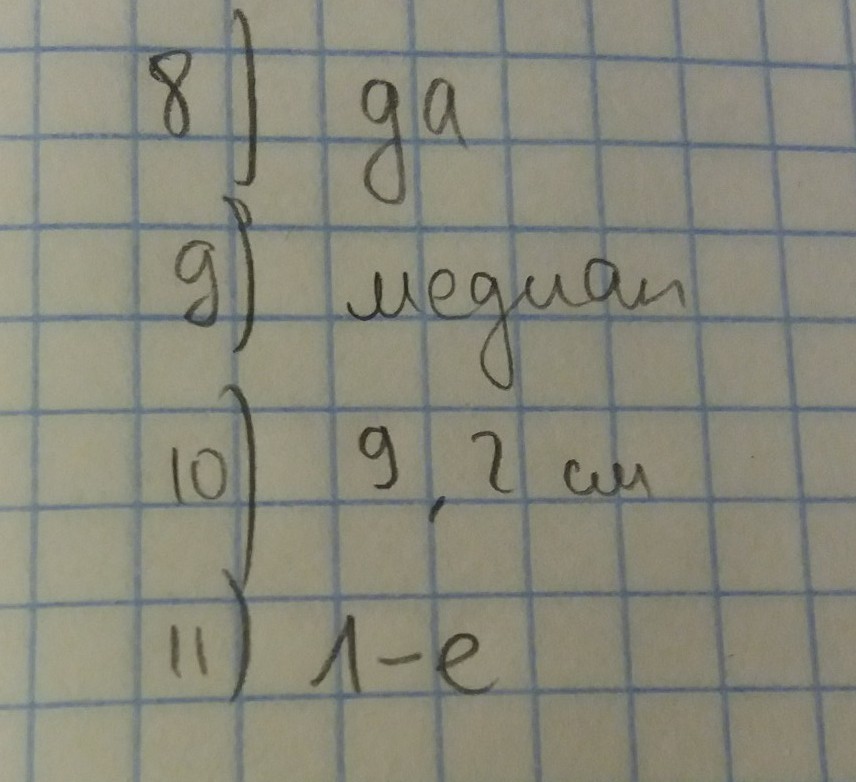 8) да
9) медиан
10) 9,2 см
11) 1-е